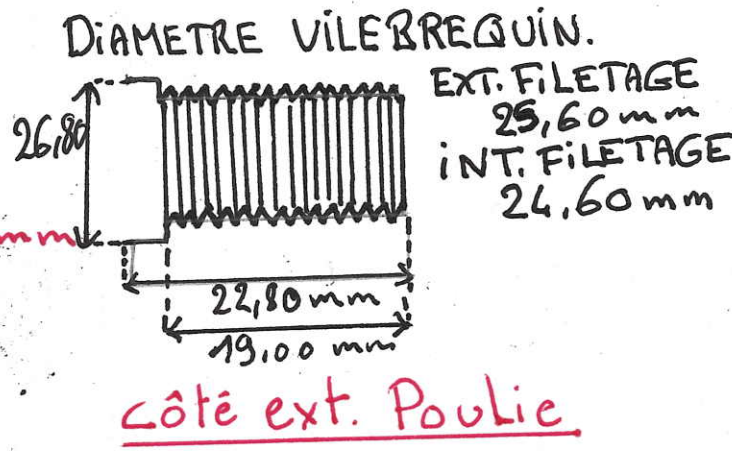 DiAMETRE ViLEBREQUiN.
EXT. FiLETAGE
25,60 mm
iNT. FiLETAGE
24,60 mm
26,80
mm
22,80 mm
19,00 mm
côté ext. Poulie